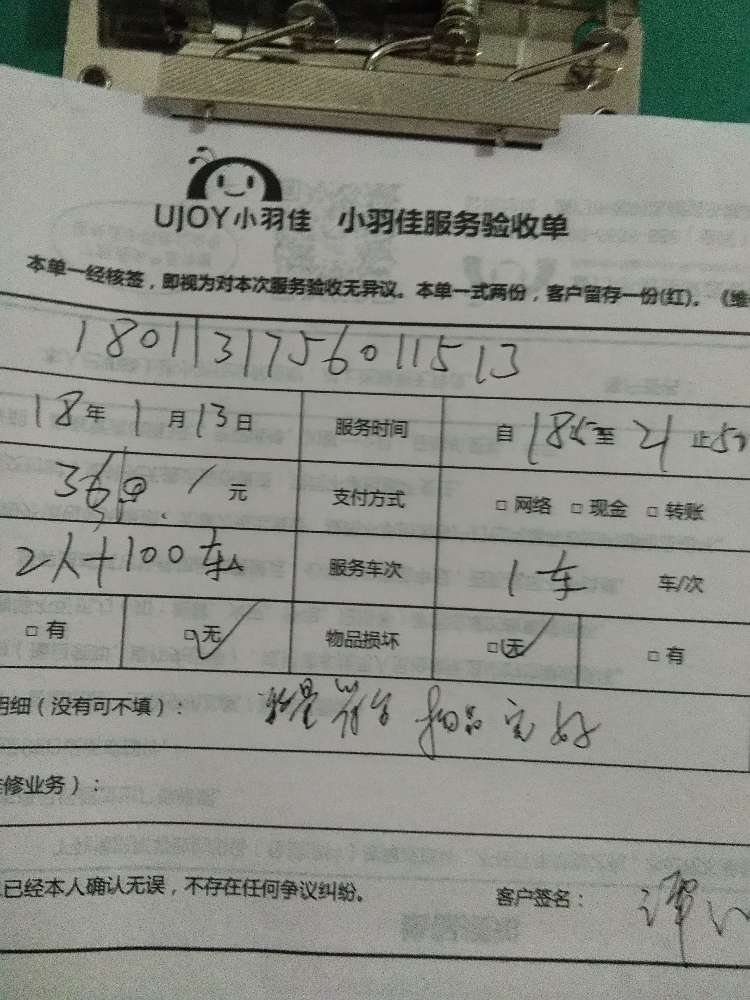 UJOY小羽佳 小羽佳服务验收单
本单一经核签，即视为对本次服务验收无异议。本单一式两份，客户留存一份(红)。《维
180113175601 1513
18年1月13日 服务时间 自18 至21 止50
元 支付方式 □网络 □现金 □转账
2人+100车 服务车次 1车 车/次
□有 □无 物品损坏 □无 □有
明细（没有可不填）： 数量符合 物品完好
修业务）：
已经本人确认无误，不存在任何争议纠纷。 客户签名： 谭